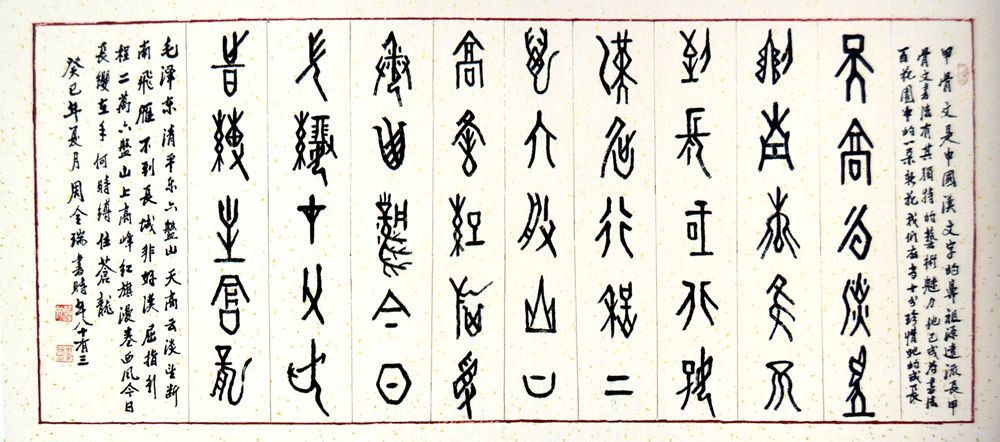 甲骨文是中國漢文字的鼻祖源遠流長甲
骨文書法有其獨特的藝術魅力她已成为書法
百花園中的一朵新花我们应当十分珍惜她的成長
天高云淡望
斷南飛雁不
到長城非好
漢屈行程二
萬六盤山上
高峰紅旗漫
卷西風今日
長纓在手何
時縛住蒼龍
毛澤东清平乐六盤山 天高云淡望斷
南飛雁不到長城非好漢屈指行
程二萬六盤山上高峰紅旗漫卷西风今日
長纓在手何時縛住蒼龍
癸巳年夏月周全瑞書時年八十有三